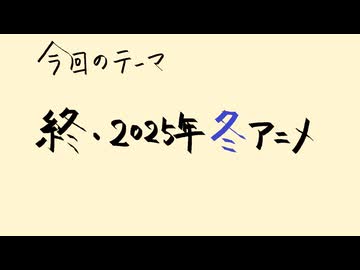 今回のテーマ
終・2025年冬アニメ